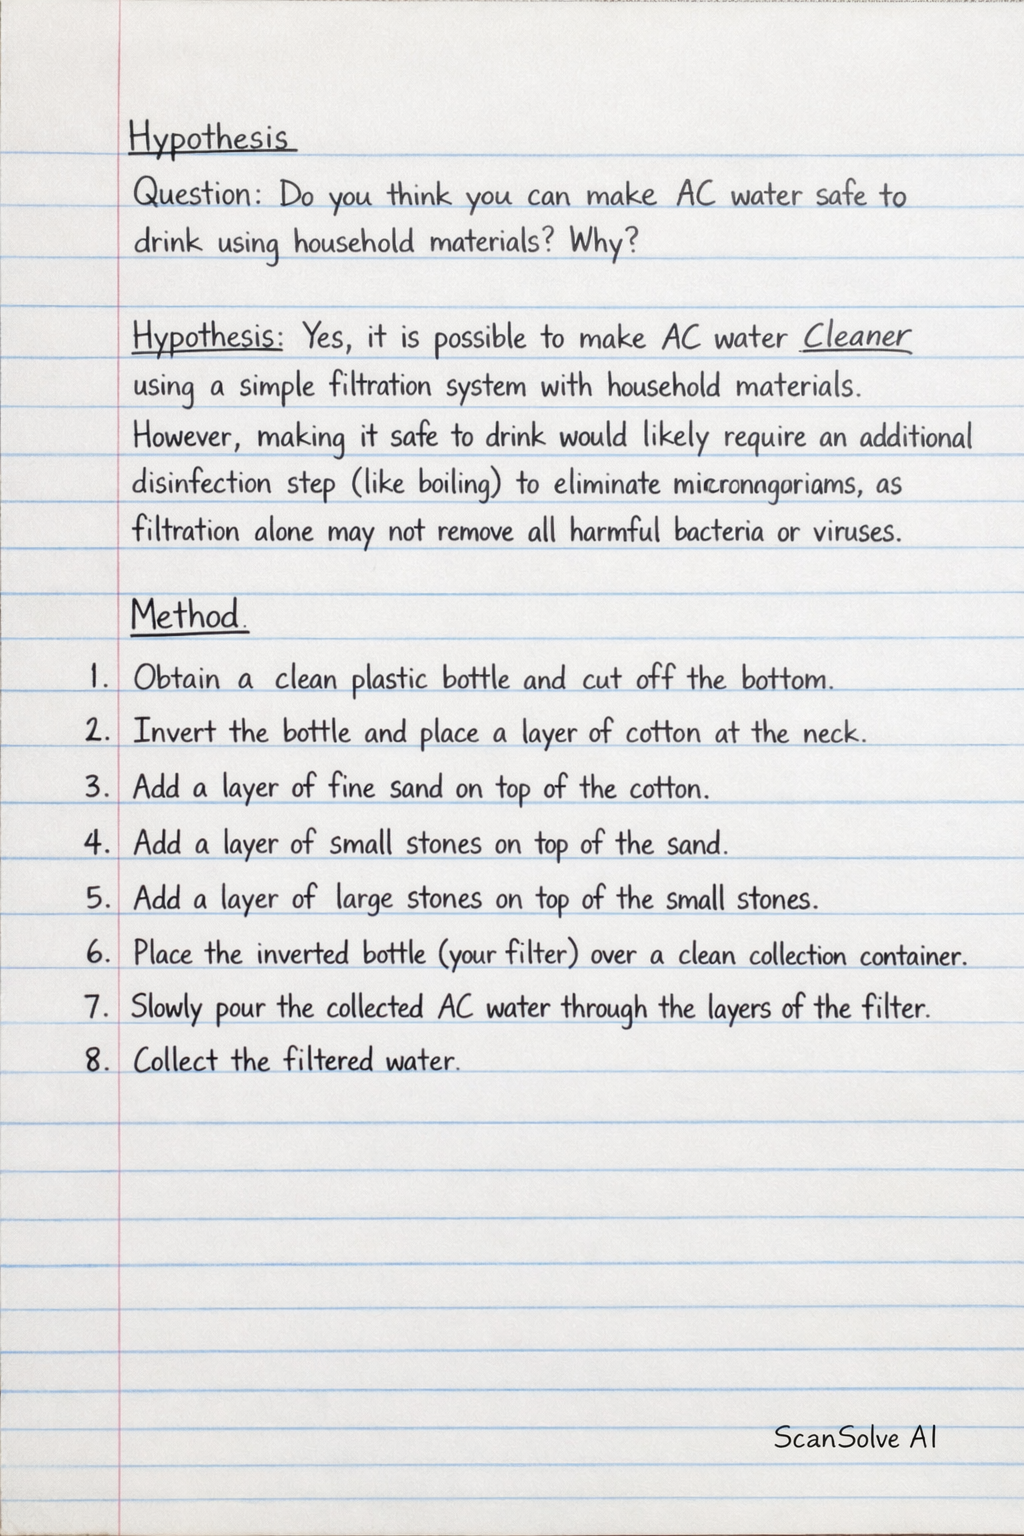 Hypothesis
Question: Do you think you can make AC water safe to
drink using household materials? Why?
Hypothesis: Yes, it is possible to make AC water Cleaner
using a simple filtration system with household materials.
However, making it safe to drink would likely require an additional
disinfection step (like boiling) to eliminate micronngoriams, as
filtration alone may not remove all harmful bacteria or viruses.
Method.
1. Obtain a clean plastic bottle and cut off the bottom.
2. Invert the bottle and place a layer of cotton at the neck.
3. Add a layer of fine sand on top of the cotton.
4. Add a layer of small stones on top of the sand.
5. Add a layer of large stones on top of the small stones.
6. Place the inverted bottle (your filter) over a clean collection container.
7. Slowly pour the collected AC water through the layers of the filter.
8. Collect the filtered water.
ScanSolve AI